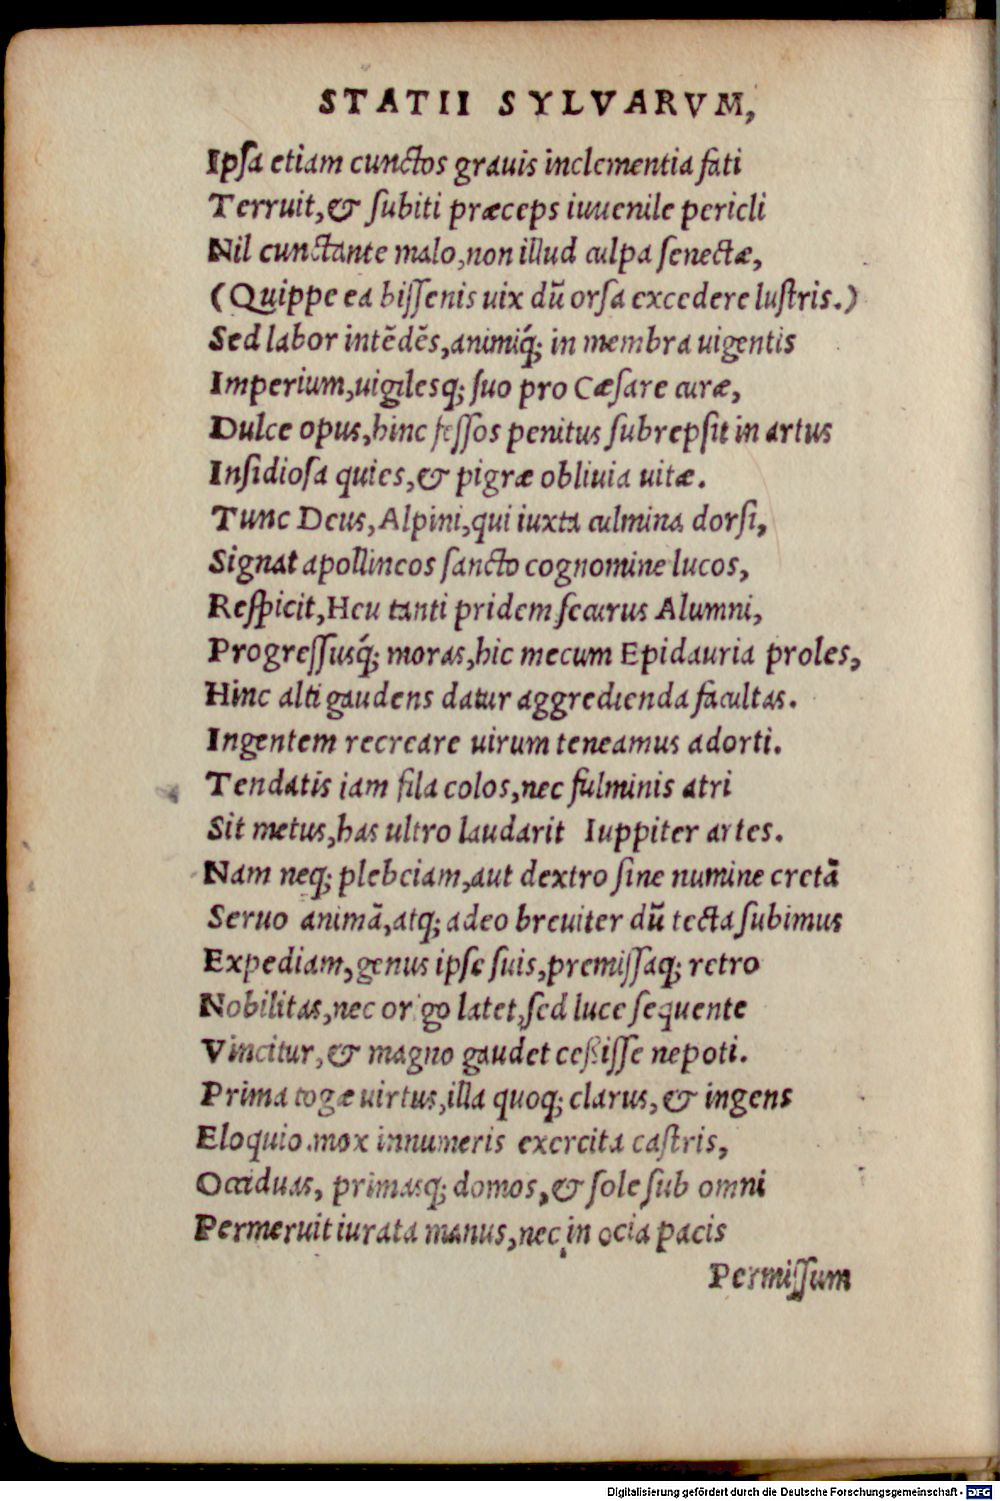 STATII SYLVARVM,
Ipſa etiam cunctos grauis inclementia fati
Terruit,& ſubiti præceps iuuenile pericli
Nil cunctante malo,non illud culpa ſenectæ,
(Quippe ea biſſenis uix dũ orſa excedere luſtris.)
Sed labor intẽdẽs,animiq́; in membra uigentis
Imperium,uigilesq; ſuo pro Cæſare curæ,
Dulce opus,hinc feſſos penitus ſubrepſit in artus
Inſidioſa quies,& pigræ obliuia uitæ.
Tunc Deus,Alpini,qui iuxta culmina dorſi,
Signat apollineos ſancto cognomine lucos,
Reſpicit,Heu tanti pridem ſecurus Alumni,
Progreſſusq́; moras,hic mecum Epidauria proles,
Hinc alti gaudens datur aggredienda facultas.
Ingentem recreare uirum teneamus adorti.
Tendatis iam fila colos,nec fulminis atri
Sit metus,has ultro laudarit Iuppiter artes.
Nam neq; plebeiam,aut dextro ſine numine cretã
Seruo animã,atq; adeo breuiter dũ tecta ſubimus
Expediam,genus ipſe ſuis,premiſſaq; retro
Nobilitas,nec origo latet,ſed luce ſequente
Vincitur,& magno gaudet ceßiſſe nepoti.
Prima togæ uirtus,illa quoq; clarus,& ingens
Eloquio.mox innumeris exercita caſtris,
Occiduas, primasq; domos,& ſole ſub omni
Permeruit iurata manus,nec in ocia pacis
Permiſſum
Digitalisierung gefördert durch die Deutsche Forschungsgemeinschaft - DFG